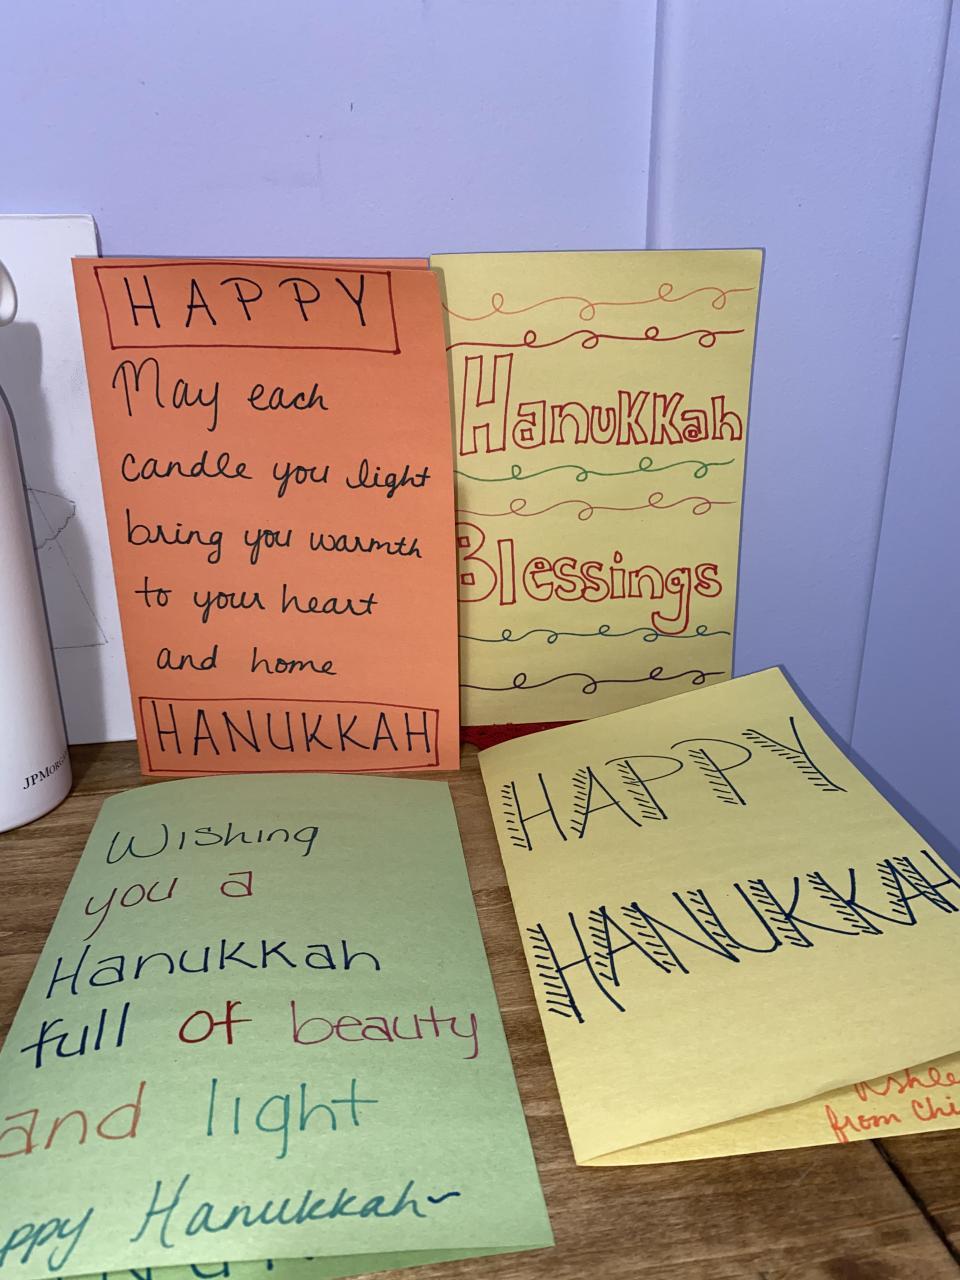 HAPPY
May each
candle you light
bring you warmth
to your heart
and home
HANUKKAH
Hanukkah
Blessings
JPMorg
Wishing
you a
Hanukkah
full of beauty
and light
ppy Hanukkah~
HAPPY
HANUKKAH
Ashle
from Chi